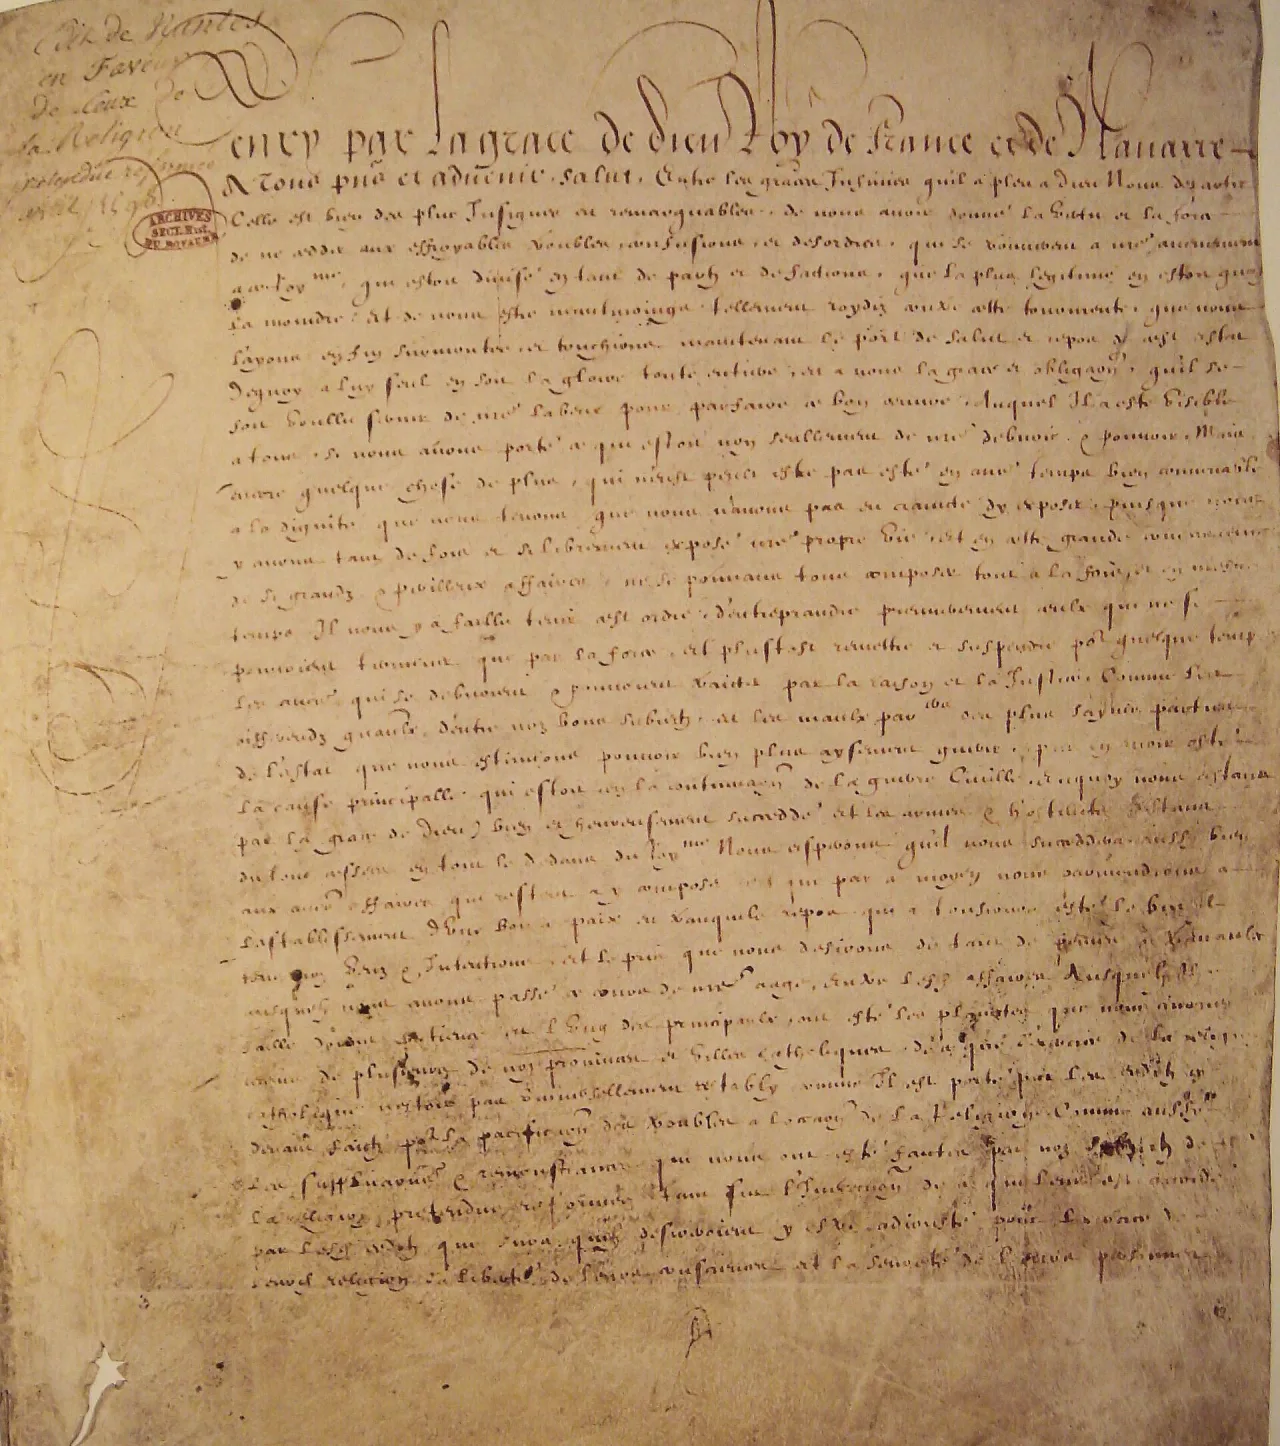 Edit de Nantes
en Faveur
de Ceux de
la Religion
pretendue reformée
avril 1598
ARCHIVES
SECT. HIST.
DU ROYAUME
Henry par la grace de dieu Roy de france et de Nauarre
A tous pn̄s et aduenir salut. Entre les graces Infinies quil a pleu a dieu Nous departir
Celle est bien des plus Insignes et remarquables, de nous auoir donné la vertu et la force
de ne cedder aux effroyables troubles confusions et desordres, qui se trouuerent a nr̄e aduenement
a ce Roy.me, qui estoit diuisé en tant de partz et de factions, que la plus legitime en estoit quasi
la moindre, Et de nous estre neantmoings tellement roydiz contre ceste tourmente, que nous
layons enfin surmontee, et touchions maintenant le port de salut et repos de cest estat
Dequoy a luy seul en soit la gloire toute entiere, et a nous la grace et obligaōn, quil se
soit voullu seruir de nr̄e labeur pour parfaire ce bon oeuure, Auquel Il a esté visible
a tous, si nous auons porté ce qui estoit non seullement de nr̄e debuoir & pouuoir, Mais
encore quelque chose de plus, qui neust peult estre pas esté en autre temps bien conuenable
a la dignité que nous tenons, que nous nauons pas eu craincte dy exposer, puisque nous
y auons tant de fois et si librement exposé nr̄e propre vie, Et en ceste grande concurrence
de si grandz & perilleux affaires, ne se pouuans tous composer tout a la fois, et en mesme
temps Il nous y a faillu tenir cest ordre, dentreprandre premierement ceulx qui ne se
pouuoient terminer que par la force, Et plustost remettre et suspendre pour quelque temps
les autres qui se debuoient & pouuoient traicter par la raison et la Justice, Comme les
differendz gnāulx, dentre noz bons subiectz, et les maulx par.ers des plus saines parties
de lestat que nous estimions pouuoir bien plus aysement guerir, apres en auoir osté
la cause principalle qui estoit en la continuaōn de la guerre Ciuille, Enquoy nous estans
par la grace de Dieu) bien et heureusement succeddé Et les armes & hostilitez estans
du tout cessees en tout le dedans du Roy.me Nous esperons quil nous succeddera aussy bien
aux autres affaires qui restent a y composer Et que par ce moyen nous paruiendrons a
lestablissement dune bonne paix et tranquile repos qui a tousiours esté le but de
tous noz veuz & Intentions, et le prix que nous desirons de tant de peines & trauaulx
ausquelz nous auons passé ce cours de nr̄e aage, Entre lesd. affaires Ausquelz Il a
faillu donner patience et lvng des principaulx, ont esté les plainctes que nous auons
receus de plusieurs de noz prouinces et villes catholiques de ce que lexercice de la religion
catholique nestoit pas vniuersellement restably comme Il est porté par les edictz cy
deuant faictz pour la pacificaōn des troubles a loccaōn de la Religion, Comme aussy
les supplicaōns & remonstrances qui nous ont esté faictes par noz subiectz de
la religion pretendue reformee, tant sur linexecuōn de ce qui leur est accordé
par lesd. edictz que sur ce quilz desireroient y estre adiousté pour lexercice de
leurd. religion, la liberté de leurs consciences et la seureté de leurs personnes